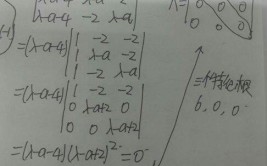 λ-a-4 -2 λ-a
=(λ-a-4) | 1 -2 -2 |
| 1 λ-a -2 |
| 1 -2 λ-a |
=(λ-a-4) | 1 -2 -2 |
| 0 λ-a+2 0 |
| 0 0 λ-a+2 |
=(λ-a-4)(λ-a+2)²=0
0 0 0
三个特征根
6, 0, 0